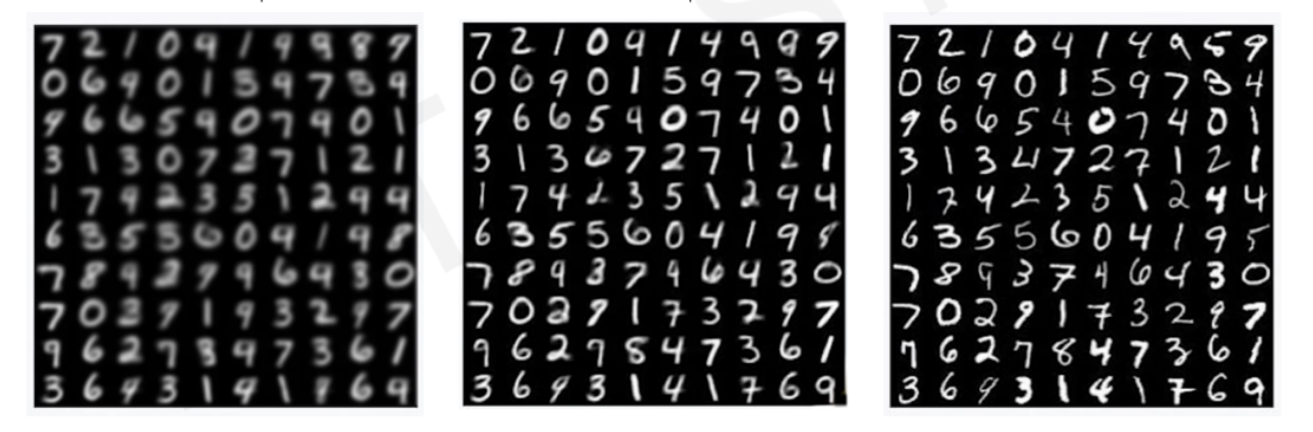 7 2 1 0 9 1 9 9 8 9
0 6 9 0 1 3 9 7 3 9
9 6 6 5 9 0 7 9 0 1
3 1 3 0 7 2 7 1 2 1
1 7 9 2 3 5 1 2 9 9
6 3 5 3 6 0 9 1 9 8
7 8 9 2 9 9 6 9 3 0
7 0 2 9 1 9 3 2 9 7
9 6 2 7 3 9 7 3 6 1
3 6 9 3 1 9 1 9 6 9
7 2 1 0 9 1 4 9 9 9
0 6 9 0 1 5 9 7 3 4
9 6 6 5 9 0 7 4 0 1
3 1 3 6 7 2 7 1 2 1
1 7 4 2 3 5 1 2 9 4
6 3 5 5 6 0 4 1 9 8
7 8 9 3 7 4 6 4 3 0
7 0 2 9 1 7 3 2 9 7
9 6 2 7 8 4 7 3 6 1
3 6 9 3 1 4 1 7 6 9
7 2 1 0 4 1 4 9 5 9
0 6 9 0 1 5 9 7 3 4
9 6 6 5 4 0 7 4 0 1
3 1 3 4 7 2 7 1 2 1
1 7 4 2 3 5 1 2 4 4
6 3 5 5 6 0 4 1 9 5
7 8 9 3 7 4 6 4 3 0
7 0 2 9 1 7 3 2 9 7
7 6 2 7 8 4 7 3 6 1
3 6 9 3 1 4 1 7 6 9